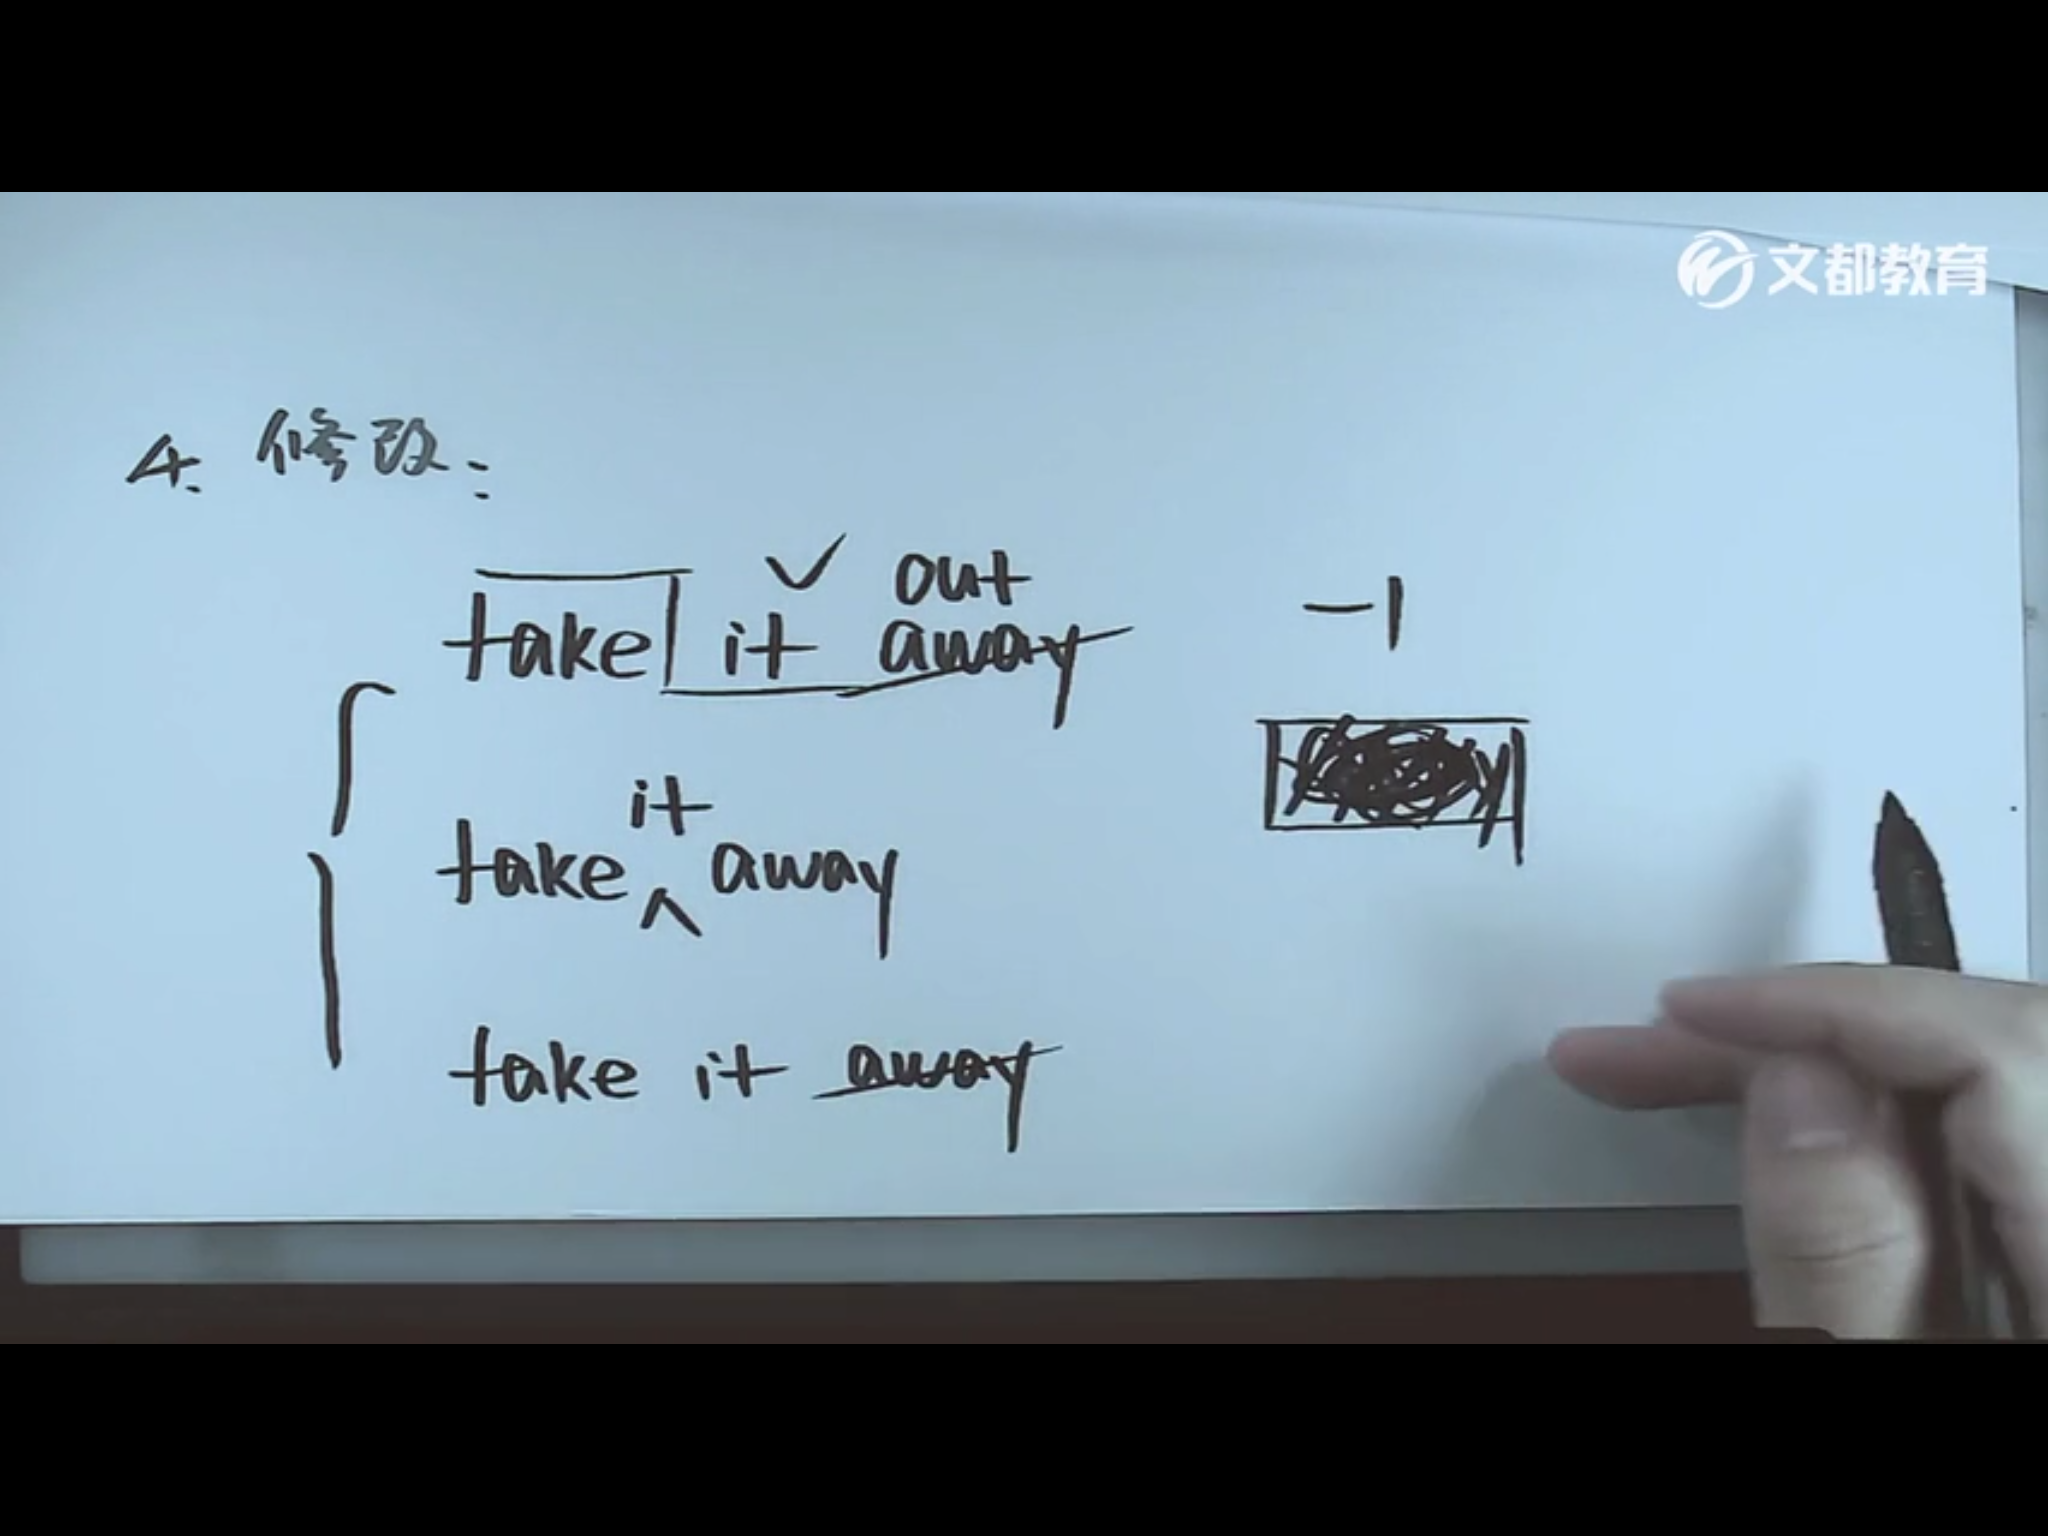 文都教育
4. 修改:
out
take it away
-1
it
take ^ away
take it away